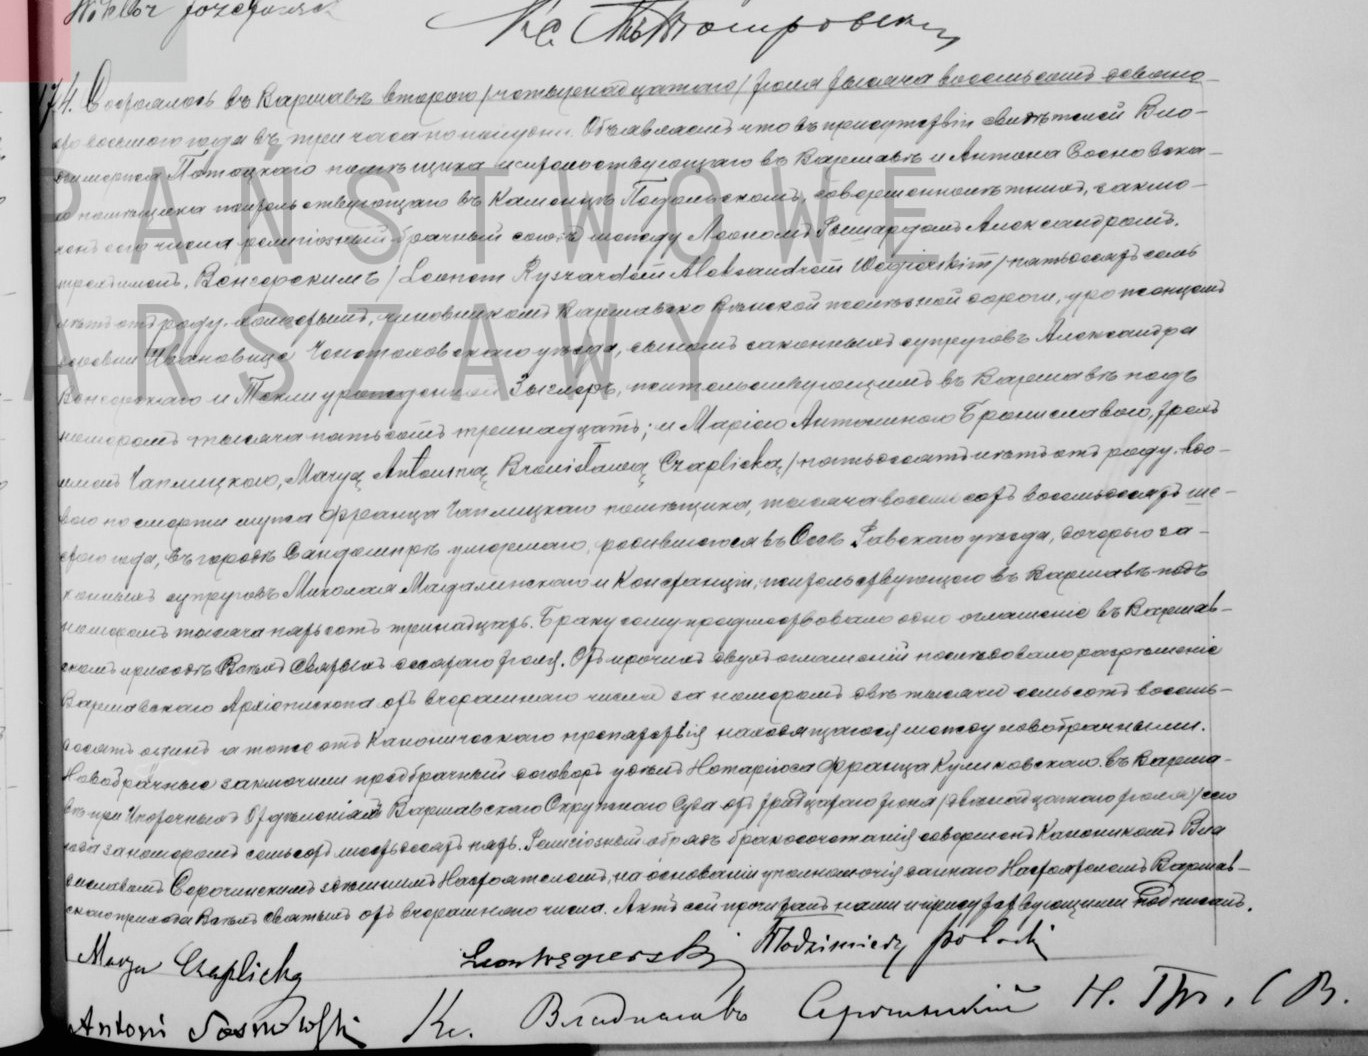 Wiktor Józefowicz
174. Состоялось въ Варшавѣ второго /четырнадцатаго/ Іюля тысяча восемьсотъ девяно-
сто восьмого года въ три часа пополудни. Объявляемъ что въ присутствіи свидѣтелей Вло-
димержа Потоцкаго помѣщика жительствующаго въ Варшавѣ и Антона Сосновска-
го помѣщика жительствующаго въ Каменцѣ Подольскомъ, совершеннолѣтнихъ, заклю-
ченъ сего числа религіозный брачный союзъ между Леономъ Рышардомъ Александромъ,
трехъ именъ, Венгерскимъ / Leonem Ryszardem Aleksandrem Węgierskim / пятьдесятъ семь
лѣтъ отъ роду, холостымъ, чиновникомъ Варшавско Вѣнской желѣзной дороги, уроженцемъ
деревни Ивановице Ченстоховскаго уѣзда, сыномъ законныхъ супруговъ Александра
Венгерскаго и Теклы урожденной Зиглеръ, жительствующимъ въ Варшавѣ подъ
номеромъ тысяча пятьсотъ тринадцать; и Маріею Антониною Брониславою, трехъ
именъ Чаплицкою, Maryą Antoniną Bronisławą Czaplicką, / пятьдесятъ лѣтъ отъ роду, вдо-
вою по смерти мужа Франца Чаплицкаго помѣщика, тысяча восемьсотъ восемьдесятъ ше-
стого года, въ городѣ Сандомирѣ умершаго, родившеюся въ Осѣ Равскаго уѣзда, дочерью за-
конныхъ супруговъ Миколая Мадалинскаго и Констанціи, жительствующею въ Варшавѣ подъ
номеромъ тысяча пятьсотъ тринадцать. Браку сему предшествовало одно оглашеніе въ Варшав-
скомъ приходѣ Всѣхъ Святыхъ десятаго Іюля. Отъ прочихъ двухъ оглашеній послѣдовало разрѣшеніе
Варшавскаго Архіепископа отъ вчерашняго числа за номеромъ двѣ тысячи семьсотъ восемь-
десятъ одинъ а тоже отъ Каноническаго препятствія находящагося между новобрачными.
Новобрачные заключили предбрачный договоръ у дѣлъ Нотаріуса Франца Куликовскаго въ Варша-
вѣ при Ипотечныхъ Отдѣленіяхъ Варшавскаго Окружнаго Суда отъ тридцатаго Іюня /двѣнадцатаго Іюля/ сего
года за номеромъ семьсотъ шестьдесятъ пять. Религіозный обрядъ бракосочетанія совершенъ Каноникомъ Вла
диславомъ Сѣрочинскимъ здѣшнимъ Настоятелемъ, на основаніи уполномочія даннаго Настоятелемъ Варшав-
скаго прихода Всѣхъ Святыхъ отъ вчерашняго числа. Актъ сей прочитанъ нами и присутствующими подписанъ.
Marya Czaplicka Leon Węgierski Włodzimierz Potocki
Antoni Sosnowski Кс. Владиславъ Сѣрочинскій Н. Пр. С В.
PAŃSTWOWE
ARSZAWY